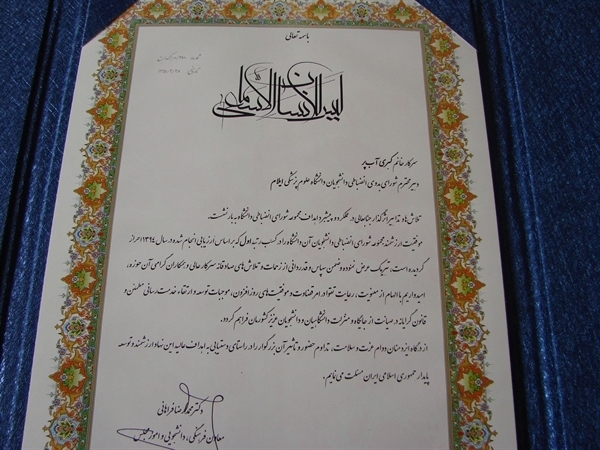 باسمه تعالی
لیس للانسان الا ما سعی
سرکار خانم کبری آب پر
دبیر محترم شورای بدوی انضباطی دانشجویان دانشگاه علوم پزشکی ایلام
تلاش ها و تدابیر اثرگذار جنابعالی در عملکرد و پیشبرد اهداف مجموعه شورای انضباطی دانشگاه به بار نشست.
موفقیت ارزشمند مجموعه شورای انضباطی دانشجویان آن دانشگاه را در کسب رتبه اول که بر اساس ارزیابی انجام شده در سال ۱۳۹۴ احراز
گردیده است، تبریک عرض نموده و ضمن سپاس و قدردانی از زحمات و تلاش های صادقانه سرکار عالی و همکاران گرامی آن حوزه،
امیدواریم با الهام از معنویت، رعایت تقوا در امر قضاوت و موفقیت های روز افزون، موجبات توسعه و ارتقاء خدمت رسانی مطمئن و
قانون گرایانه در صیانت از جایگاه و منزلت دانشگاهیان و دانشجویان عزیز کشورمان فراهم گردد.
از درگاه ایزد منان دوام عزت و سلامت، تداوم حضور و تاثیر آن بزرگوار را در راستای دستیابی به اهداف عالیه این نهاد ارزشمند و توسعه
پایدار جمهوری اسلامی ایران مسئلت می نماییم.
دکتر محمدرضا فراهانی
معاون فرهنگی، دانشجویی و امور مجلس